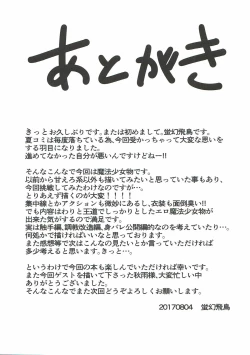 あとがき
きっとお久しぶりです。または初めまして。蛍幻飛鳥です。
夏コミは毎度落ちている為、今回受かっちゃって大変な思いを
する羽目になりました。
進めてなかった自分が悪いんですけどねー!!
そんなこんなで今回は魔法少女物です。
以前から甘えろ系以外も描いてみたいと思っていた事もあり、
今回挑戦してみたわけなのですが…。
とりあえず描くのが大変!!!!
集中線とかアクションも微妙にあるし、衣装も面倒臭い!!
でも内容はわりと王道でしっかりとしたエロ魔法少女物が
出来た気がするので満足です。
実は触手編、調教改造編、身バレ公開編的なのを考えていたり…。
何処かで描ければいいなと思っております。
また感想等で次はこんなの見たいとか言っていただければ
多少考えると思います。きっと…。
というわけで今回の本も楽しんでいただければ幸いです。
また今回ゲストを描いて下さった秋雨様、大変忙しい中
ありがとうございました。
そんなこんなでまた次回どうぞよろしくお願いします。
20170804 蛍幻飛鳥